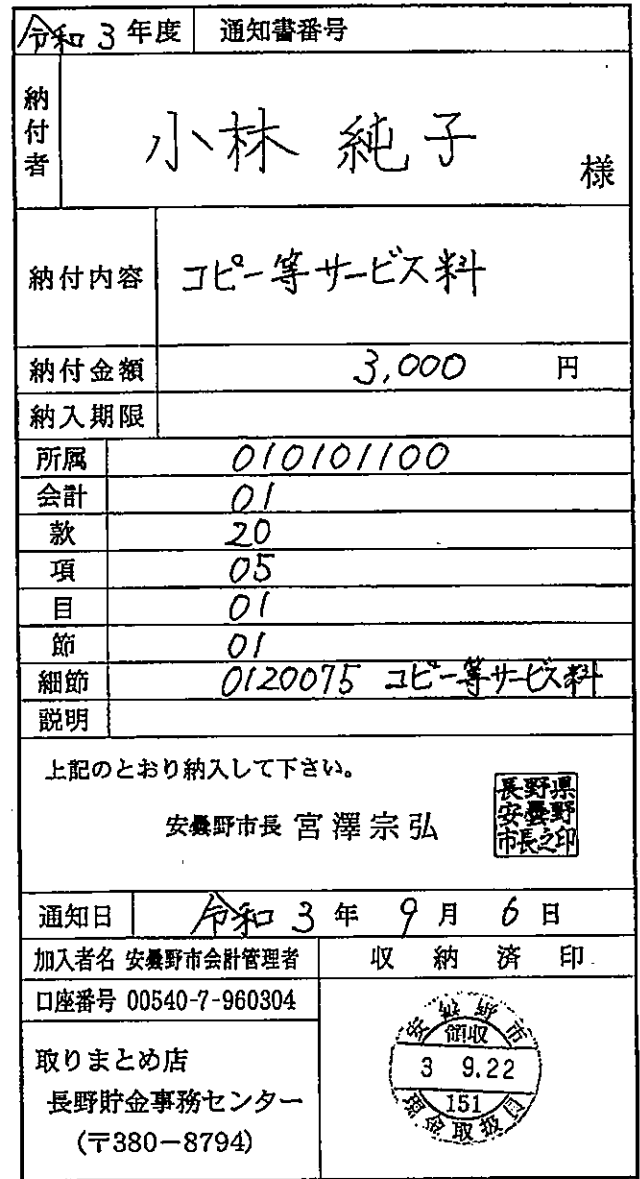 令和3年度 通知書番号
納付者 小林 純子 様
納付内容 コピー等サービス料
納付金額 3,000 円
納入期限
所属 010101100
会計 01
款 20
項 05
目 01
節 01
細節 0120075 コピー等サービス料
説明
上記のとおり納入して下さい。
安曇野市長 宮澤宗弘
長野県
安曇野
市長之印
通知日 令和 3 年 9 月 6 日
加入者名 安曇野市会計管理者 収納済印
口座番号 00540-7-960304
取りまとめ店
長野貯金事務センター
(〒380-8794)
安曇野市
領収
3 9.22
151
現金取扱員